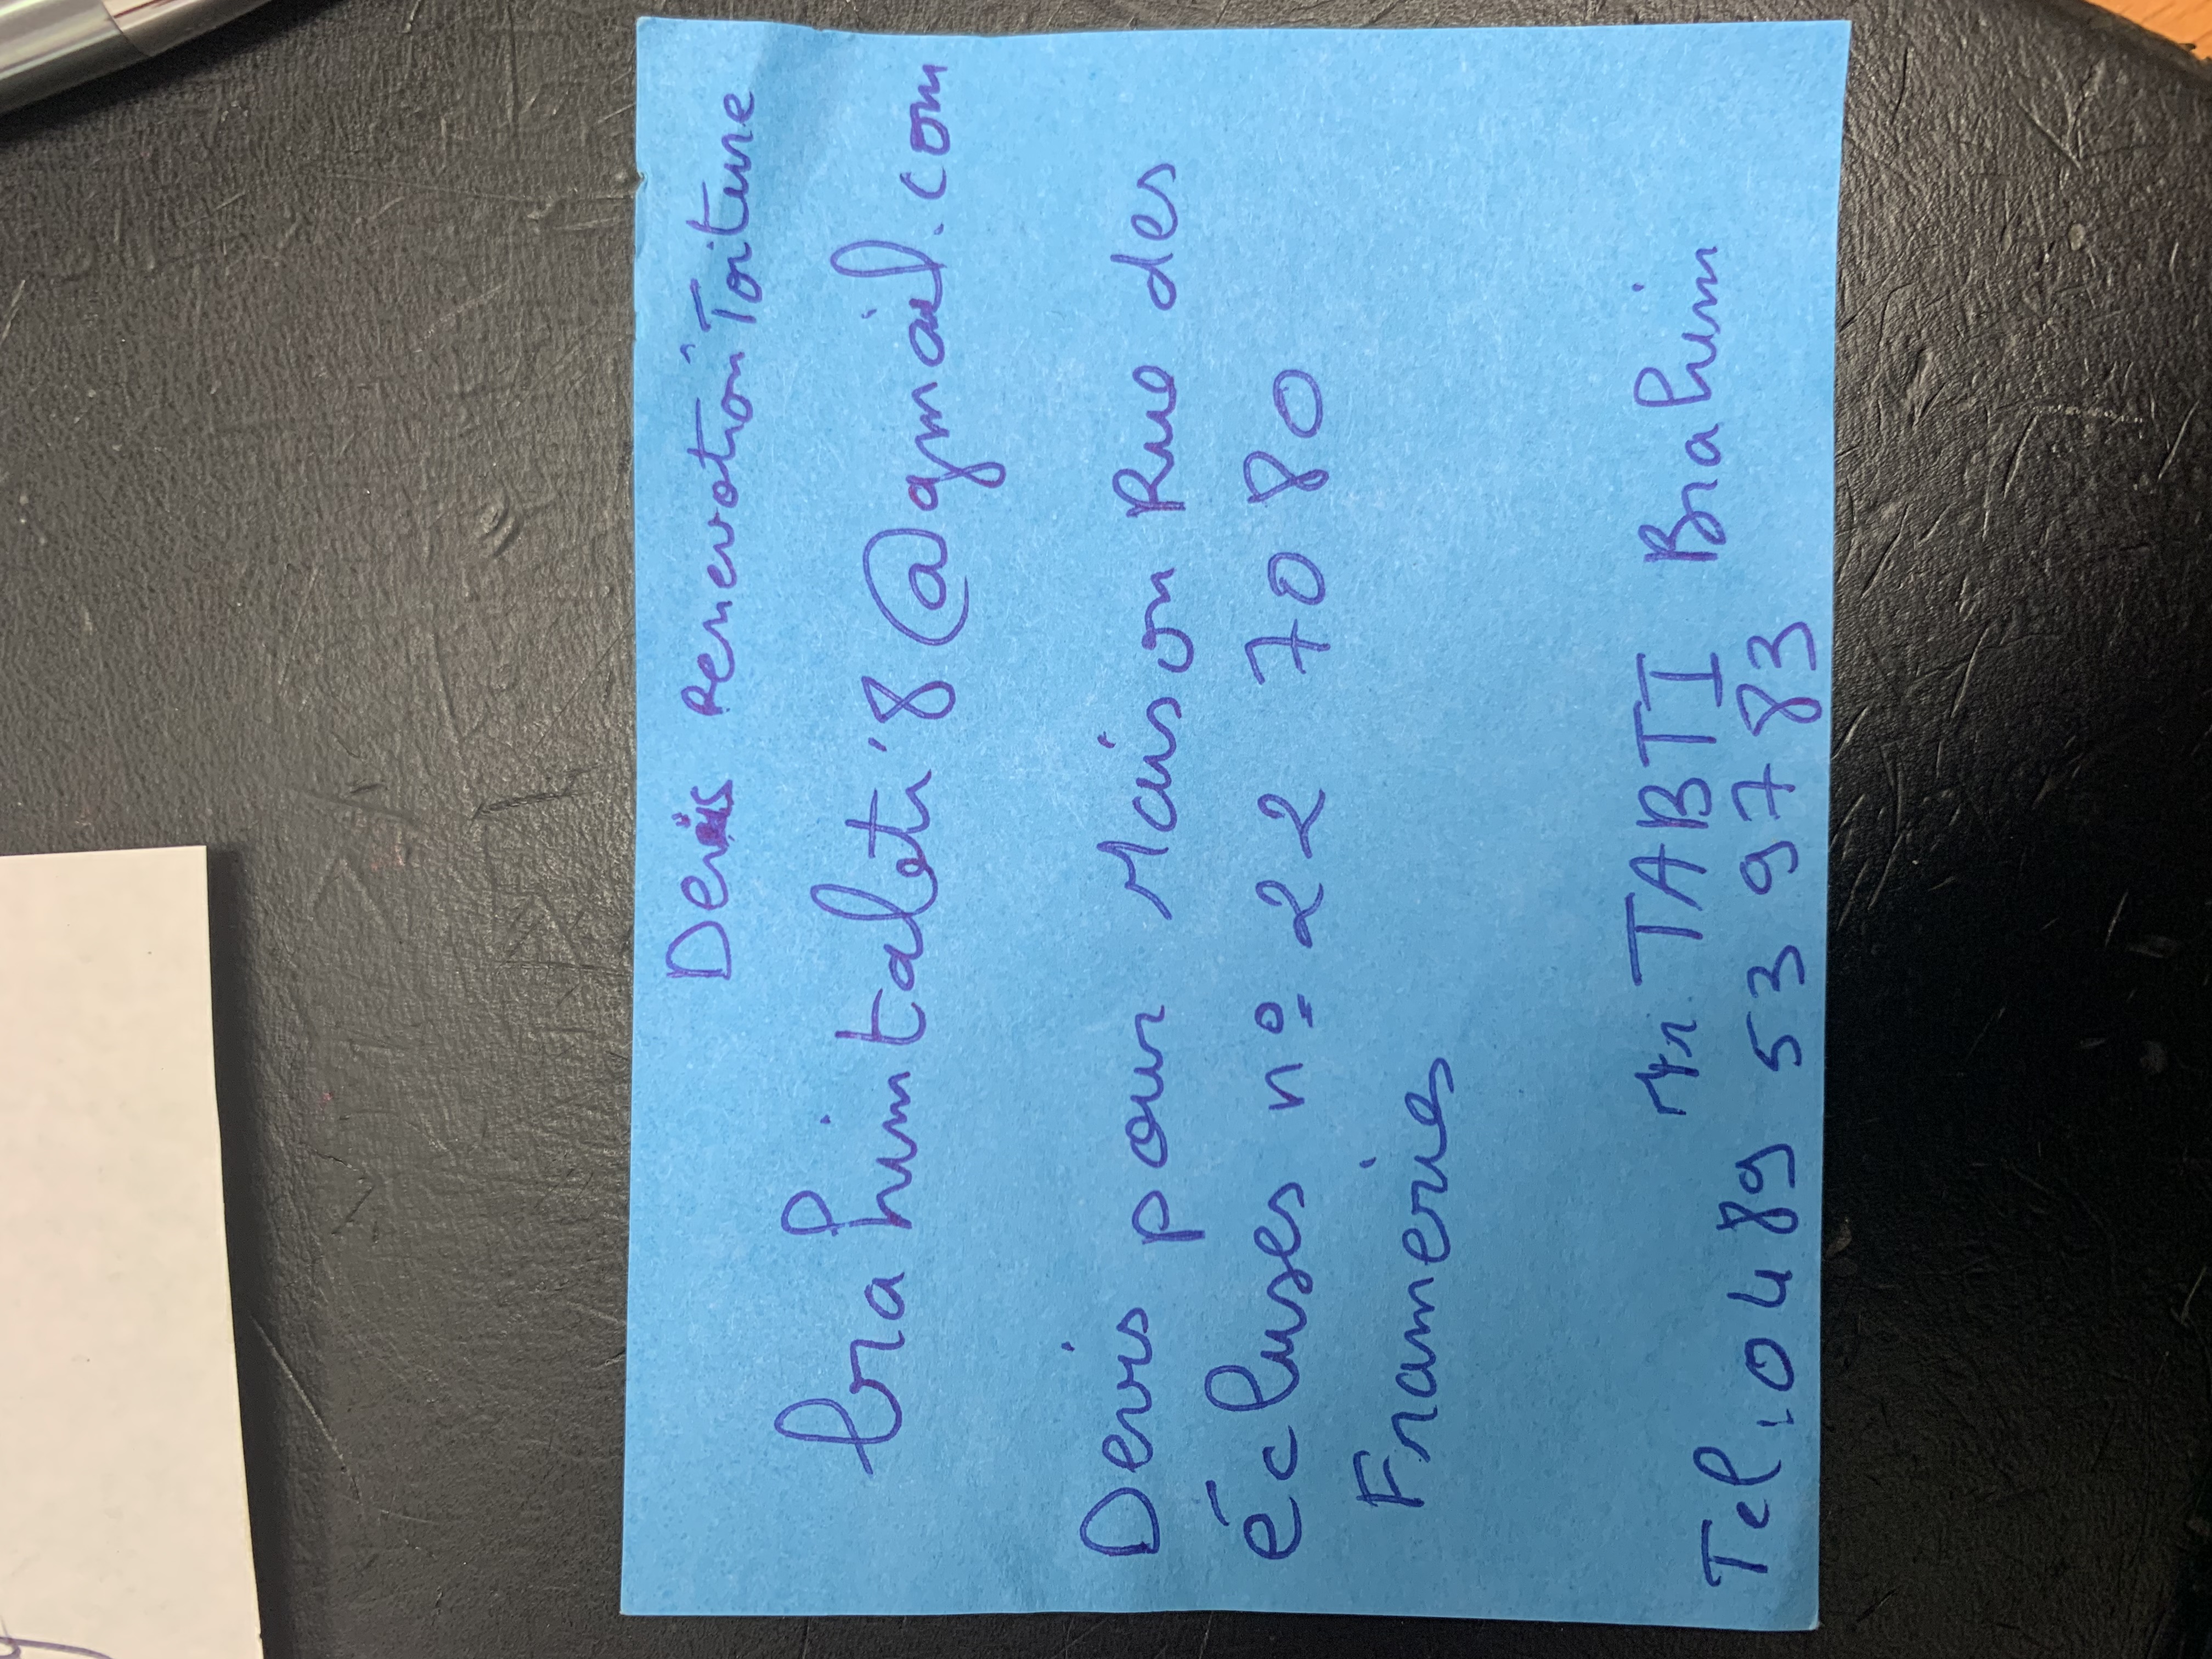 Devis renovation Toiture
brahimtableti8@gmail.com
Devis pour Maison Rue des
écluses n° 22 7080
Frameries
Mr TABTI Brahim
Tel:0489 53 97 83